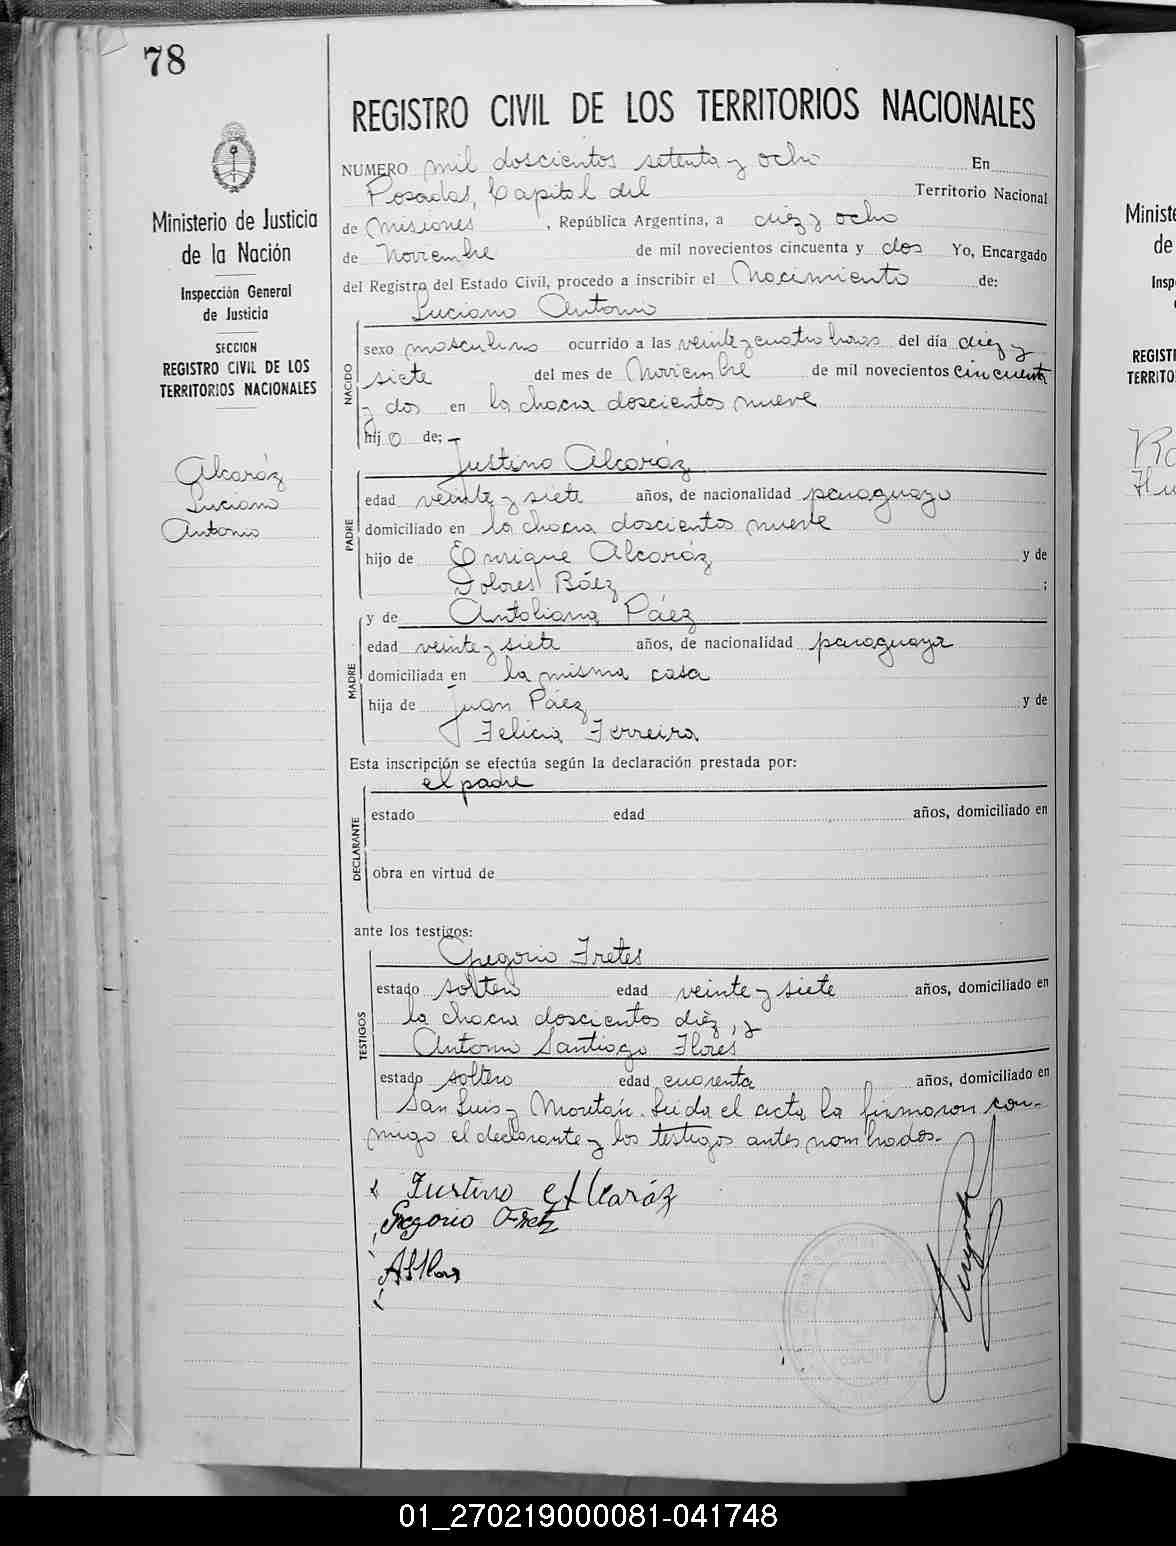 78
REGISTRO CIVIL DE LOS TERRITORIOS NACIONALES
Ministerio de Justicia
de la Nación
Inspección General
de Justicia
SECCION
REGISTRO CIVIL DE LOS
TERRITORIOS NACIONALES
Alcaráz
Luciano
Antonio
NUMERO mil doscientos setenta y ocho En
Posadas, Capital del Territorio Nacional
de Misiones, República Argentina, a diez y ocho
de Noviembre de mil novecientos cincuenta y dos Yo, Encargado
del Registro del Estado Civil, procedo a inscribir el Nacimiento de:
Luciano Antonio
NACIDO
sexo masculino ocurrido a las veinte y cuatro horas del día diez y
siete del mes de Noviembre de mil novecientos cincuenta
y dos en la chacra doscientos nueve
hijo de;
Justino Alcaráz
PADRE
edad veinte y siete años, de nacionalidad paraguayo
domiciliado en la chacra doscientos nueve
hijo de Enrique Alcaráz y de
Dolores Báez ;
y de Antoliana Páez
MADRE
edad veinte y siete años, de nacionalidad paraguaya
domiciliada en la misma casa
hija de Juan Páez y de
Felicia Ferreira
Esta inscripción se efectúa según la declaración prestada por:
el padre
DECLARANTE
estado edad años, domiciliado en
obra en virtud de
ante los testigos:
Gregorio Fretes
TESTIGOS
estado soltero edad veinte y siete años, domiciliado en
la chacra doscientos diez, y
Antonio Santiago Flores
estado soltero edad cuarenta años, domiciliado en
San Luis y Moután. Leida el acta la firmaron con-
migo el declarante y los testigos antes nombrados.
Justino Alcaráz
Gregorio Fretz
Minist
de
Insp
REGISTR
TERRITO
01_270219000081-041748